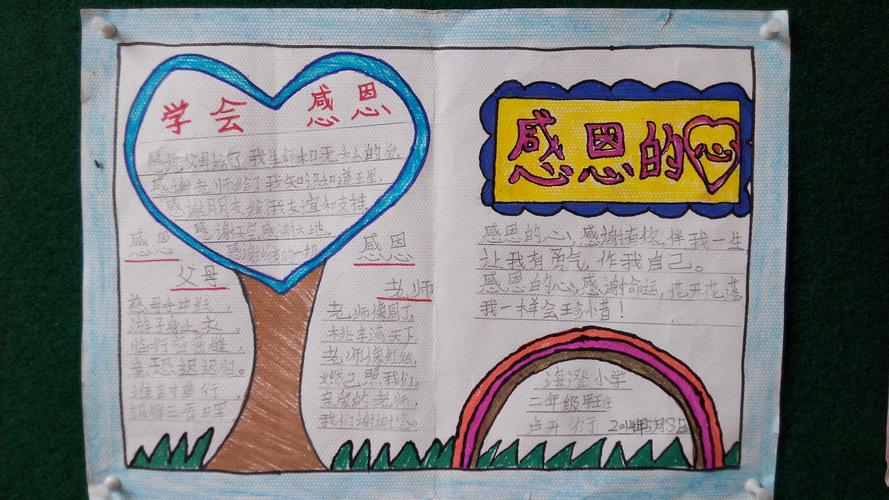 学会 感恩
感谢父母给了我生命和无私的爱
感谢老师给了我知识和道理,
感谢朋友给我友谊和支持
感谢天空感谢大地,
感谢的一切
感恩
父母
慈母手中线,
游子身上衣,
临行密密缝,
意恐迟迟归。
谁言寸草行,
报得三春日军
感恩
老师
老师像园丁,
桃李满天下
老师像红烛,
燃己照我们,
亲爱的老师,
我们谢谢您
感恩的心
感恩的心,感谢有你,伴我一生
让我有勇气,作我自己。
感恩的心,感谢命运,花开花落,
我一样会珍惜!
海澄小学
二年级甲班
卢开
2014年5月8日